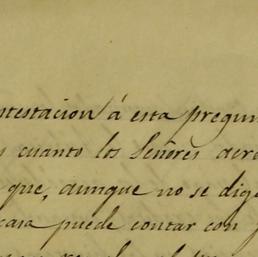 ntestacion á esta pregun
s cuanto los Señores acre
que, aunque no se dige
casa puede contar con